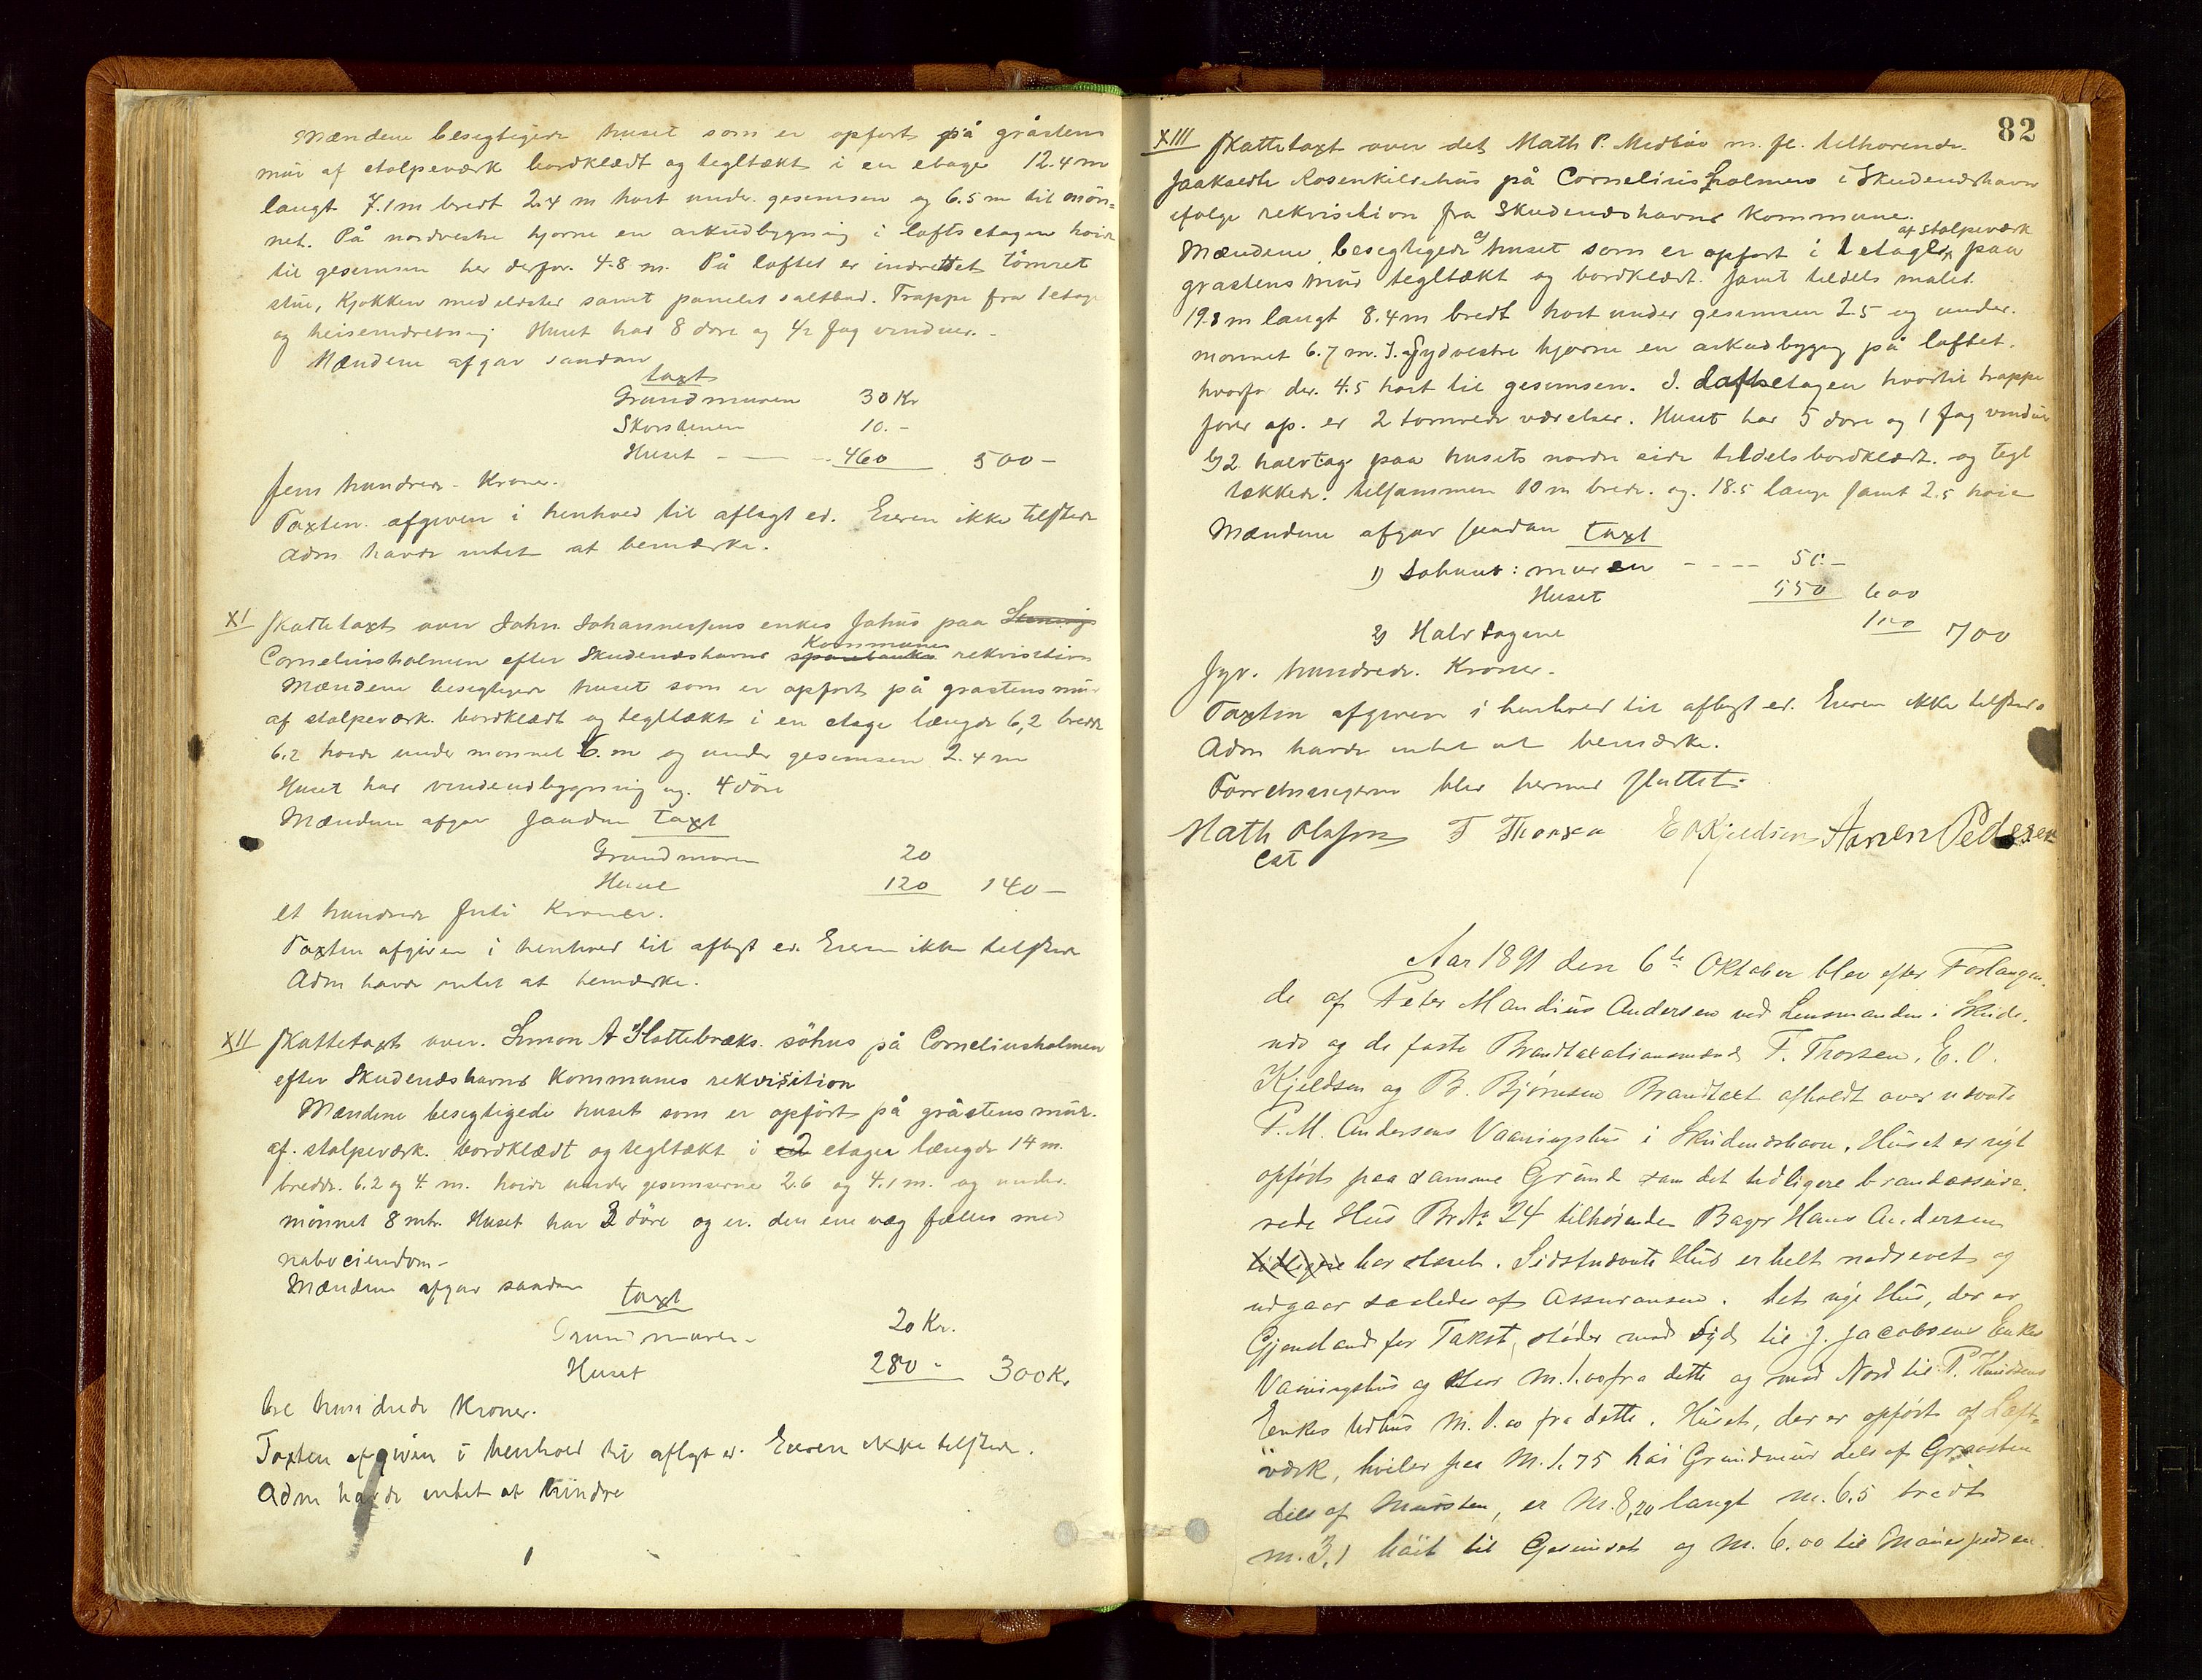 Mændene besegtigede huset som er opført på gråstens
mur af stolpeværk bordklædt og tegltækt i en etage 12.4 m
langt 7.1 m bredt 2.4 m høit under gesemsen og 6.5 m til møn=
net. På nordvestre hjørne en arkudbygning i loftsetagen høide
til gesemsen her derfor. 4.8 m. På loftet er indrettet tømret
stue, Kjøkken med ildsted samt panelet saltbod. Trappe fra 1 etage
og heiseindretning Huset har 8 døre og 4½ fag vinduer. -
Mændene afgav saadan
taxt
Grundmuren 30 Kr
Skorstenen 10. -
Huset - — - 460 500 -
fem hundrede - Kroner.
Taxten afgiven i henhold til aflagt ed. Eieren ikke tilstede
Adm havde intet at bemærke.
XI Skattetaxt over John Johannessens enkes søhus paa
Kommunes
Corneliusholmen efter Skudeneshavns sparebanks rekvisition
Mændene besegtigede huset som er opført på gråstens mur
af stolpeværk. bordklædt og tegltækt i en etage længde 6,2 bredde
6.2 høide under mønnet 6. m og under gesemsen 2.4 m
Huset har vindeudbygning og. 4 døre
Mændene afgav saadan taxt
Grundmuren 20
Huset 120 140 -
et hundrede firti Kroner.
Taxten afgiven i henhold til aflagt ed. Eieren ikke tilstede
Adm havde intet at bemærke.
XII Skattetaxt over. Simon A Slottebræks. söhus på Corneliusholmen
efter Skudeneshavns Kommunes rekvisition
Mændene besegtigede huset som er opført på gråstens mur.
af. stolpeværk. bordklædt og tegltækt i 2 etager længde 14 m.
bredde. 6.2 og 4. m. høide under gesemserne 2.6 og 4.1 m. og under.
mønnet 8 mtr. Huset har 3 döre og er. den ene væg fælles med
naboeiendom -
Mændene afgav saadan
taxt
Grundmuren - 20 Kr.
Huset 280 - 300 Kr
tre hundrede Kroner.
Taxten afgiven i henhold til aflagt ed. Eieren ikke tilstede.
Adm havde intet at hindre
82
XIII Skattetaxt over det Math P. Medbøe m. fl. tilhørende
saakaldte Rosenkildehus på Corneliusholmen i Skudeneshavn
ifølge rekvisition fra Skudeneshavns Kommune.
af stolpeværk
Mændene besegtigede huset som er opført i 1 etage paa
gråstens mur tegltækt og bordklædt. samt tildels malet.
19.8 m langt 8.4 m bredt høit under gesemsen 2.5 og under.
mønnet 6.7 m. I. Sydvestre hjørne en arkudbygg på loftet.
hvorfor der. 4.5 høit til gesemsen. I. Loftsetagen hvortil trappe
fører op. er 2 tømrede værelser. Huset har 5 døre og 1 fag vindue
2 halvtag paa husets nordre side tildels bordklædt. og tegl
tækkede. tilsammen 10 m brede. og. 18.5 lange samt 2.5 høie
Mændene afgav saadan taxt
1) Søhuset: muren - - - - 50 -
Huset 550 600
2) Halvtagene 100 700
syv. hundrede. Kroner. -
Taxten afgiven i henhold til aflagt ed. Eieren ikke tilstede
Adm havde intet at bemærke.
Forretningerne blev hermed sluttet.
Math Olsson F Thorsen E O Kjeldsen Aanen Pedersen
cst
Aar 1891 den 6te Oktober blev efter Forlangen-
de af Peter Mandius Andersen ved Lensmanden i Skude-
nes og de faste Brandtaxationsmænd F. Thorsen, E. O.
Kjeldsen og B. Bjørnsen Brandtaxt afholdt over nævnte
P. M. Andersens Vaaningshus i Skudeneshavn. Huset er nyt
opført paa samme Grund som det tidligere brandassure-
rede Hus Br. No 24 tilhørende Bager Hans Andersen
tidligere har staaet. Sidstnævnte Hus er helt nedrevet og
udgaar saaledes af Assuransen. Det nye Hus, der er
Gjenstand for Takst, støder mod Syd til J. Jacobsens Enkes
Vaaningshus og staar M. 1.00 fra dette og mod Nord til P. Knudsens
Enkes Udhus M. 1.00 fra dette. Huset, der er opført af Lafte-
værk, hviler paa M. 1.75 höi Grundmur dels af Graasten
dels af Mursten, er M. 8,20 langt M. 6.5 bredt
M. 3,1 höit til Gesimset og M. 6.00 til